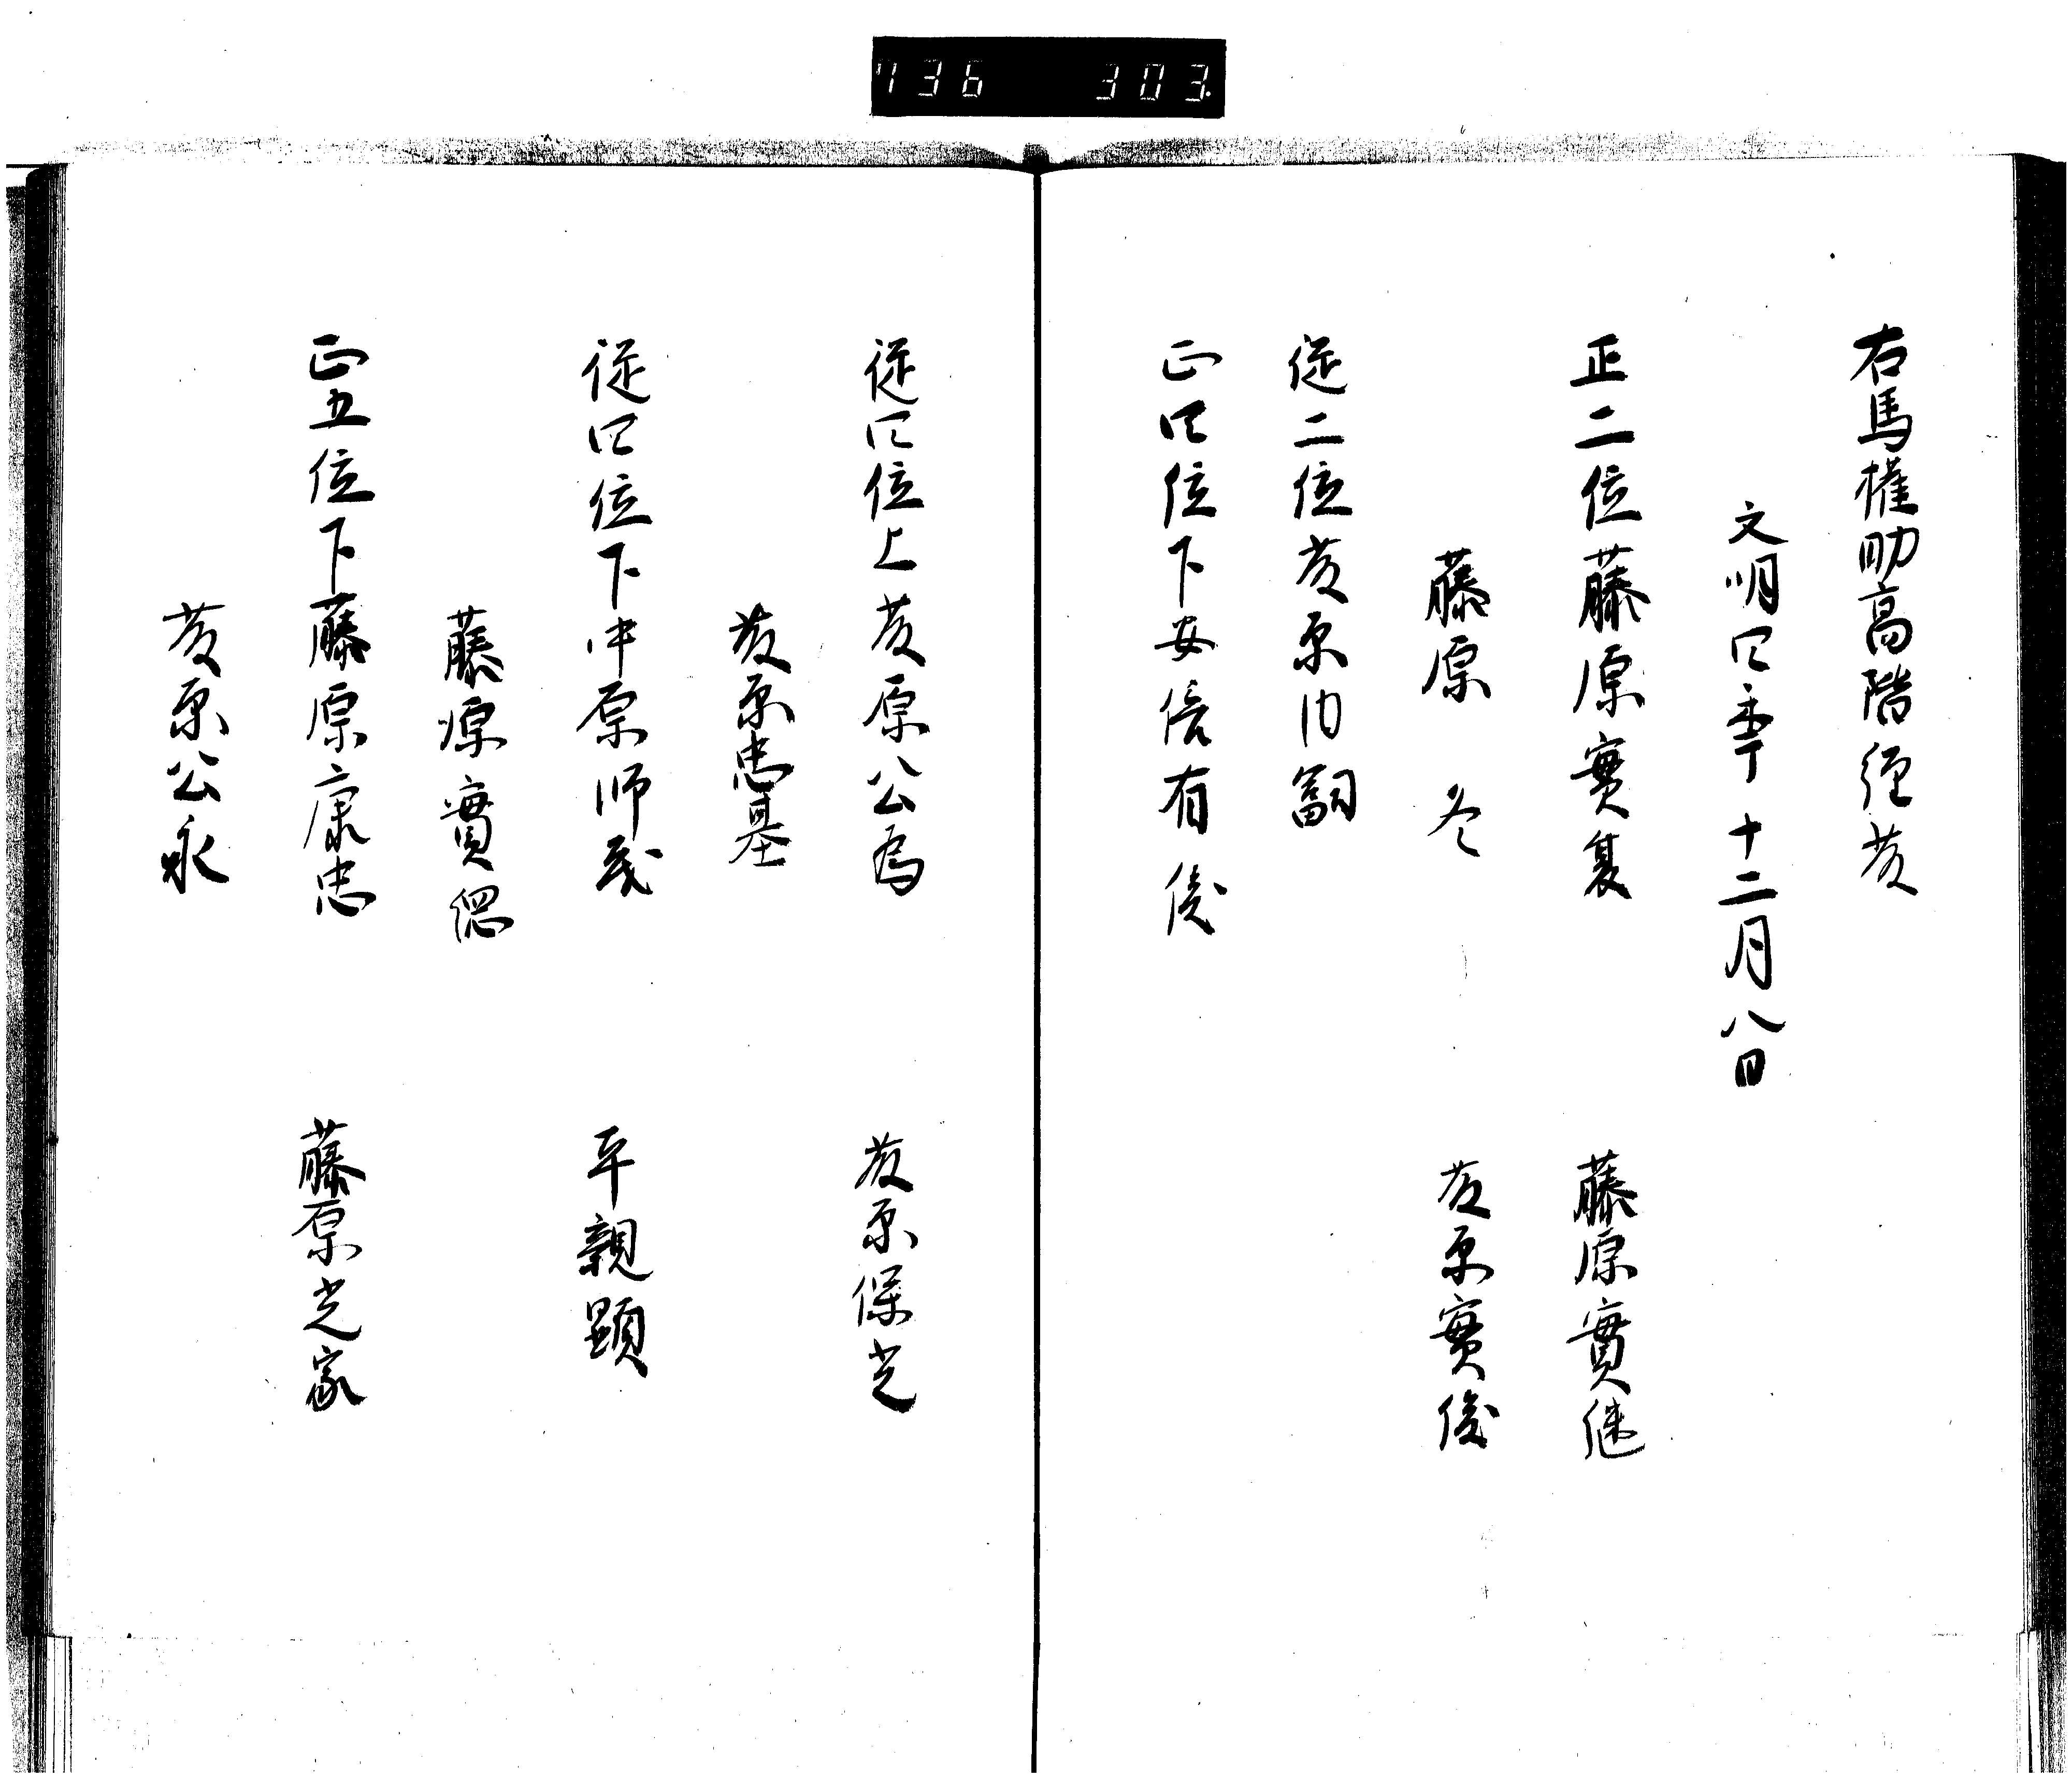 736 303
右馬権助高階経茂
文明四季十二月八日
正二位藤原實夏 藤原實継
藤原 冬 藤原實俊
従二位藤原内嗣
正四位下安倍有俊
従四位上藤原公為 藤原保光
藤原忠基
従四位下中原师茂 平親顕
藤原實偲
正五位下藤原康忠 藤原光家
藤原公永